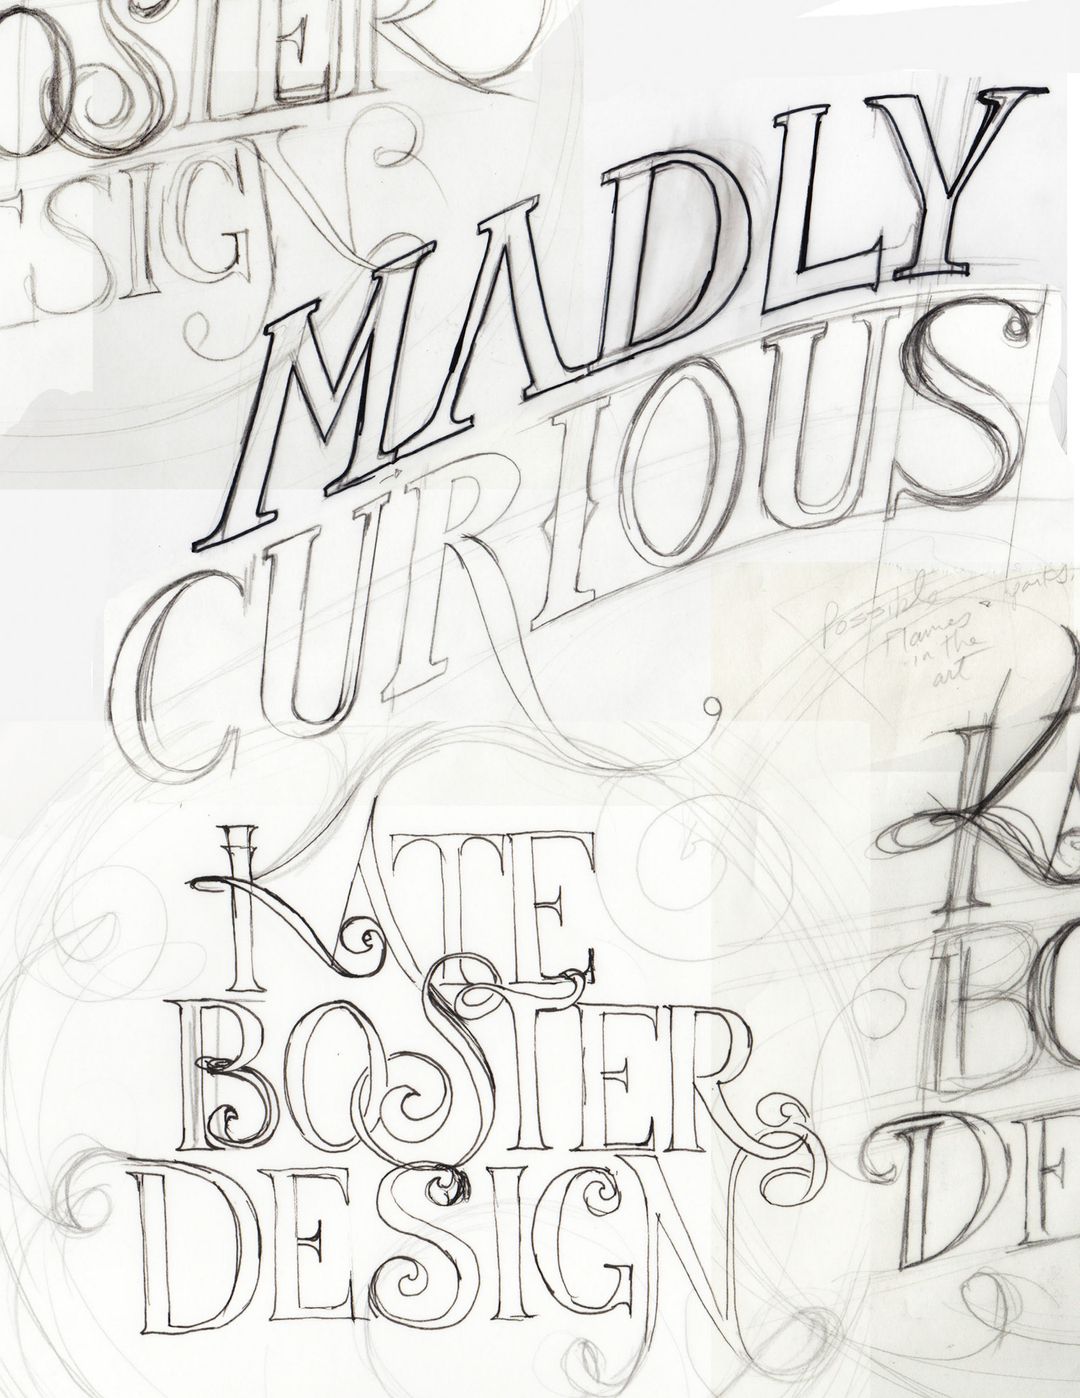 OSTER
ESIGN
MADLY
CURIOUS
Possible
Flames
in the
art
KATE
BOSTER
DESIGN
KA
BO
DE